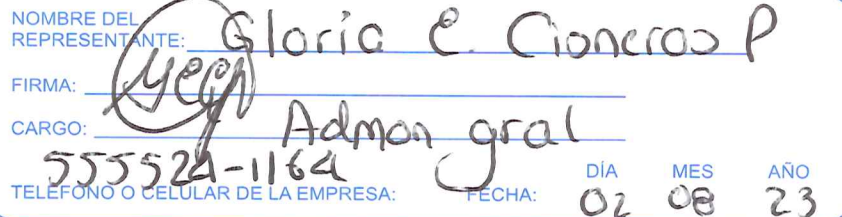 NOMBRE DEL
REPRESENTANTE: Gloria E. Cioneros P
FIRMA:
CARGO: Admon gral
555524-1164
DÍA MES AÑO
TELÉFONO O CELULAR DE LA EMPRESA: FECHA: 02 08 23